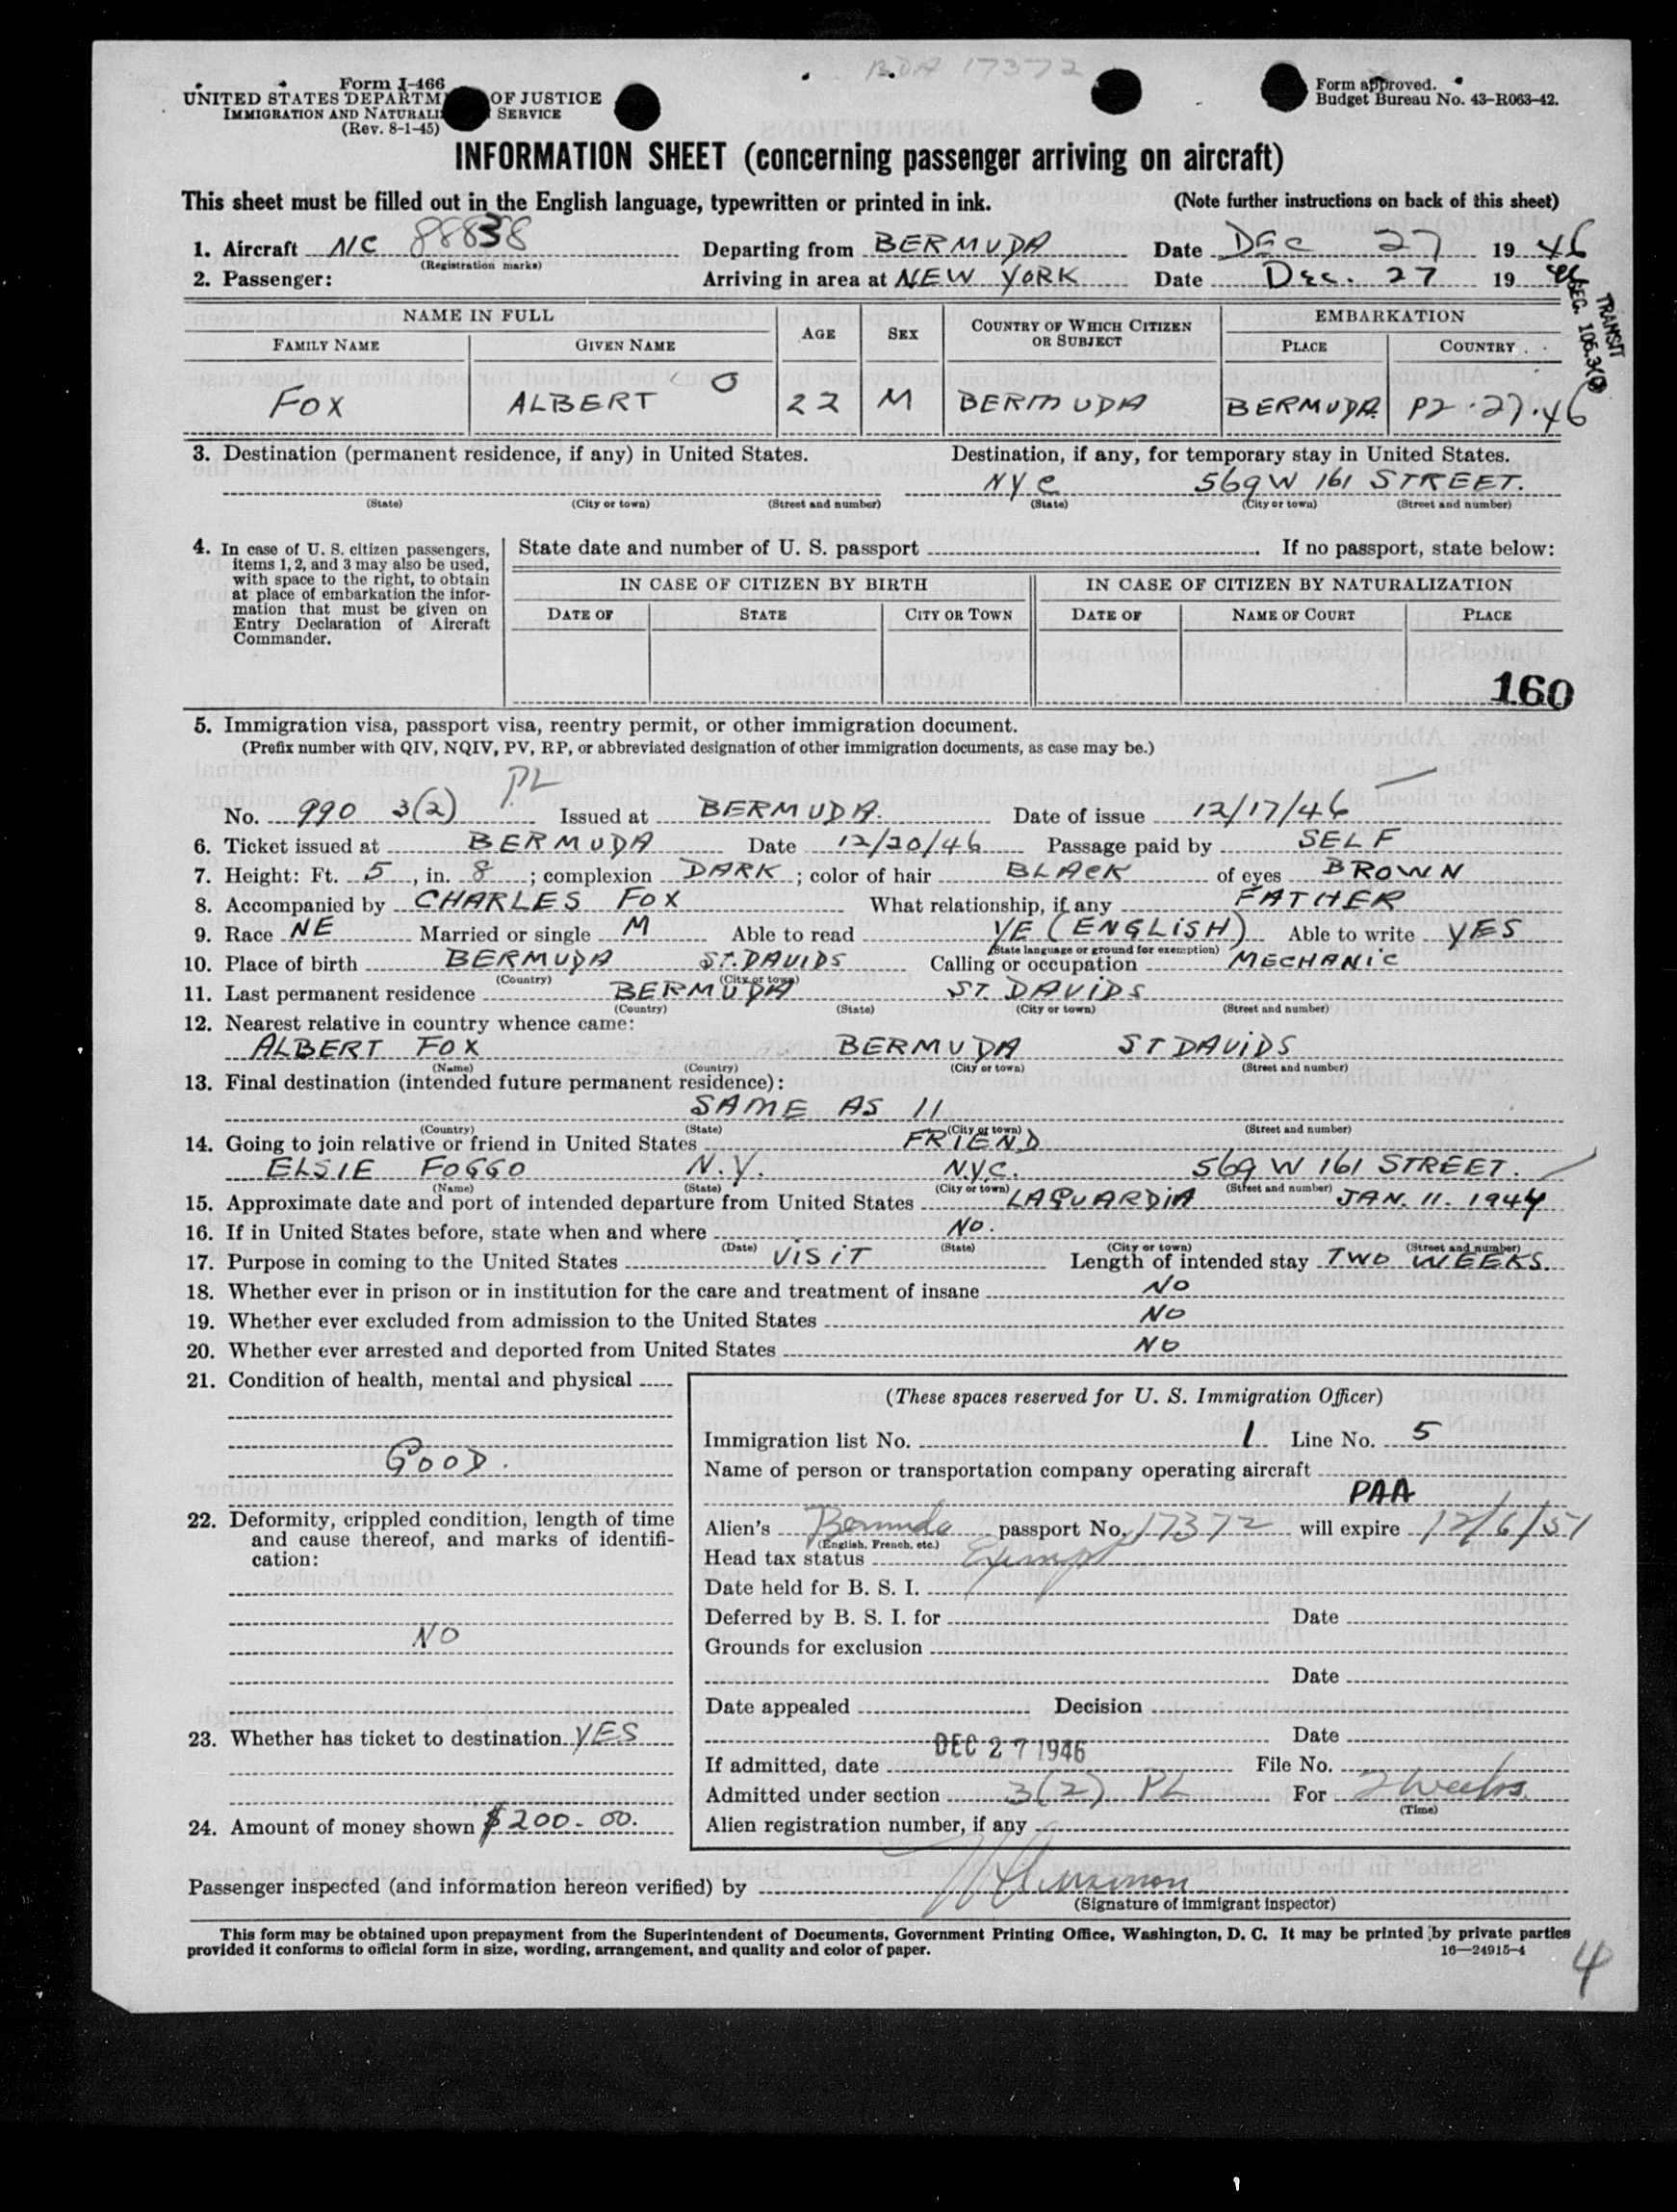 BDA 17372
Form I-466
UNITED STATES DEPARTM OF JUSTICE
IMMIGRATION AND NATURALI SERVICE
(Rev. 8-1-45)
Form approved.
Budget Bureau No. 43-R063-42.
INFORMATION SHEET (concerning passenger arriving on aircraft)
This sheet must be filled out in the English language, typewritten or printed in ink. (Note further instructions on back of this sheet)
1. Aircraft NC 88838 Departing from BERMUDA Date DEC 27 1946
(Registration marks)
2. Passenger: Arriving in area at NEW YORK Date DEC. 27 1946
TRANSIT
SEC. 106.3(
NAME IN FULL AGE SEX COUNTRY OF WHICH CITIZEN OR SUBJECT EMBARKATION
FAMILY NAME GIVEN NAME PLACE COUNTRY
FOX ALBERT O 22 M BERMUDA BERMUDA 27.46
3. Destination (permanent residence, if any) in United States. Destination, if any, for temporary stay in United States.
NYC 569 W 161 STREET.
(State) (City or town) (Street and number) (State) (City or town) (Street and number)
4. In case of U. S. citizen passengers, items 1, 2, and 3 may also be used, with space to the right, to obtain at place of embarkation the information that must be given on Entry Declaration of Aircraft Commander.
State date and number of U. S. passport If no passport, state below:
IN CASE OF CITIZEN BY BIRTH IN CASE OF CITIZEN BY NATURALIZATION
DATE OF STATE CITY OR TOWN DATE OF NAME OF COURT PLACE
160
5. Immigration visa, passport visa, reentry permit, or other immigration document.
(Prefix number with QIV, NQIV, PV, RP, or abbreviated designation of other immigration documents, as case may be.)
PL
No. 990 3(2) Issued at BERMUDA. Date of issue 12/17/46
6. Ticket issued at BERMUDA Date 12/20/46 Passage paid by SELF
7. Height: Ft. 5, in. 8; complexion DARK; color of hair BLACK of eyes BROWN
8. Accompanied by CHARLES FOX What relationship, if any FATHER
9. Race NE Married or single M Able to read YE (ENGLISH) Able to write YES
(State language or ground for exemption)
10. Place of birth BERMUDA ST. DAVIDS Calling or occupation MECHANIC
(Country) (City or town)
11. Last permanent residence BERMUDA ST. DAVIDS
(Country) (State) (City or town) (Street and number)
12. Nearest relative in country whence came:
ALBERT FOX BERMUDA ST DAVIDS
(Name) (Country) (City or town) (Street and number)
13. Final destination (intended future permanent residence):
SAME AS 11
(Country) (State) (City or town) (Street and number)
14. Going to join relative or friend in United States FRIEND
ELSIE FOGGO N.Y. N.Y.C. 569 W 161 STREET.
(Name) (State) (City or town) (Street and number)
15. Approximate date and port of intended departure from United States LAGUARDIA JAN. 11. 1947
16. If in United States before, state when and where NO.
(Date) (State) (City or town) (Street and number)
17. Purpose in coming to the United States VISIT Length of intended stay TWO WEEKS.
18. Whether ever in prison or in institution for the care and treatment of insane NO
19. Whether ever excluded from admission to the United States NO
20. Whether ever arrested and deported from United States NO
21. Condition of health, mental and physical
GOOD.
22. Deformity, crippled condition, length of time and cause thereof, and marks of identification:
NO
23. Whether has ticket to destination YES
24. Amount of money shown $200.00.
(These spaces reserved for U. S. Immigration Officer)
Immigration list No. 1 Line No. 5
Name of person or transportation company operating aircraft
PAA
Alien's Bermuda passport No. 17372 will expire 12/6/51
(English, French, etc.)
Head tax status Exempt
Date held for B. S. I.
Deferred by B. S. I. for Date
Grounds for exclusion
Date
Date appealed Decision
Date
DEC 27 1946
If admitted, date File No.
Admitted under section 3(2) PL For 2 weeks
(Time)
Alien registration number, if any
Passenger inspected (and information hereon verified) by
(Signature of immigrant inspector)
This form may be obtained upon prepayment from the Superintendent of Documents, Government Printing Office, Washington, D. C. It may be printed by private parties
provided it conforms to official form in size, wording, arrangement, and quality and color of paper. 16—24915-4
4